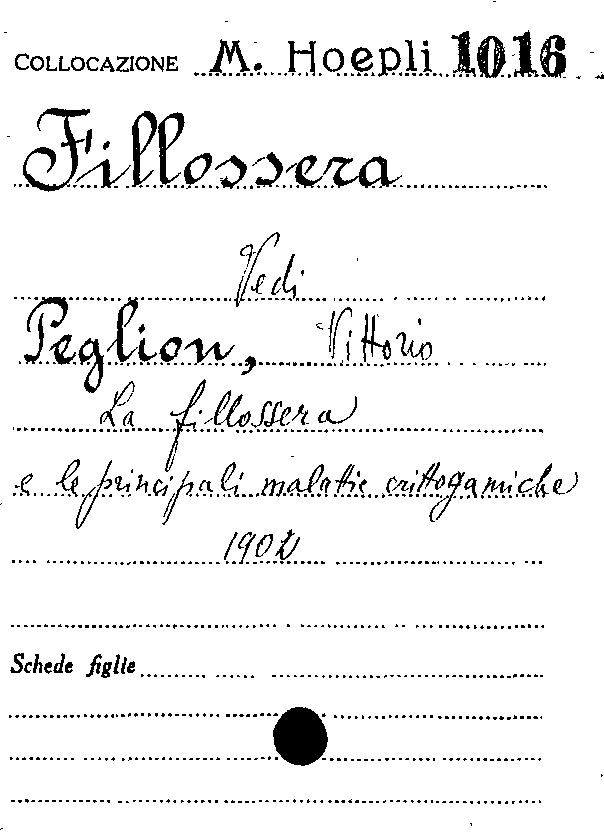 COLLOCAZIONE M. Hoepli 1016
Fillossera
Vedi
Peglion, Vittorio
La fillossera
e le principali malattie crittogamiche
1902
Schede figlie